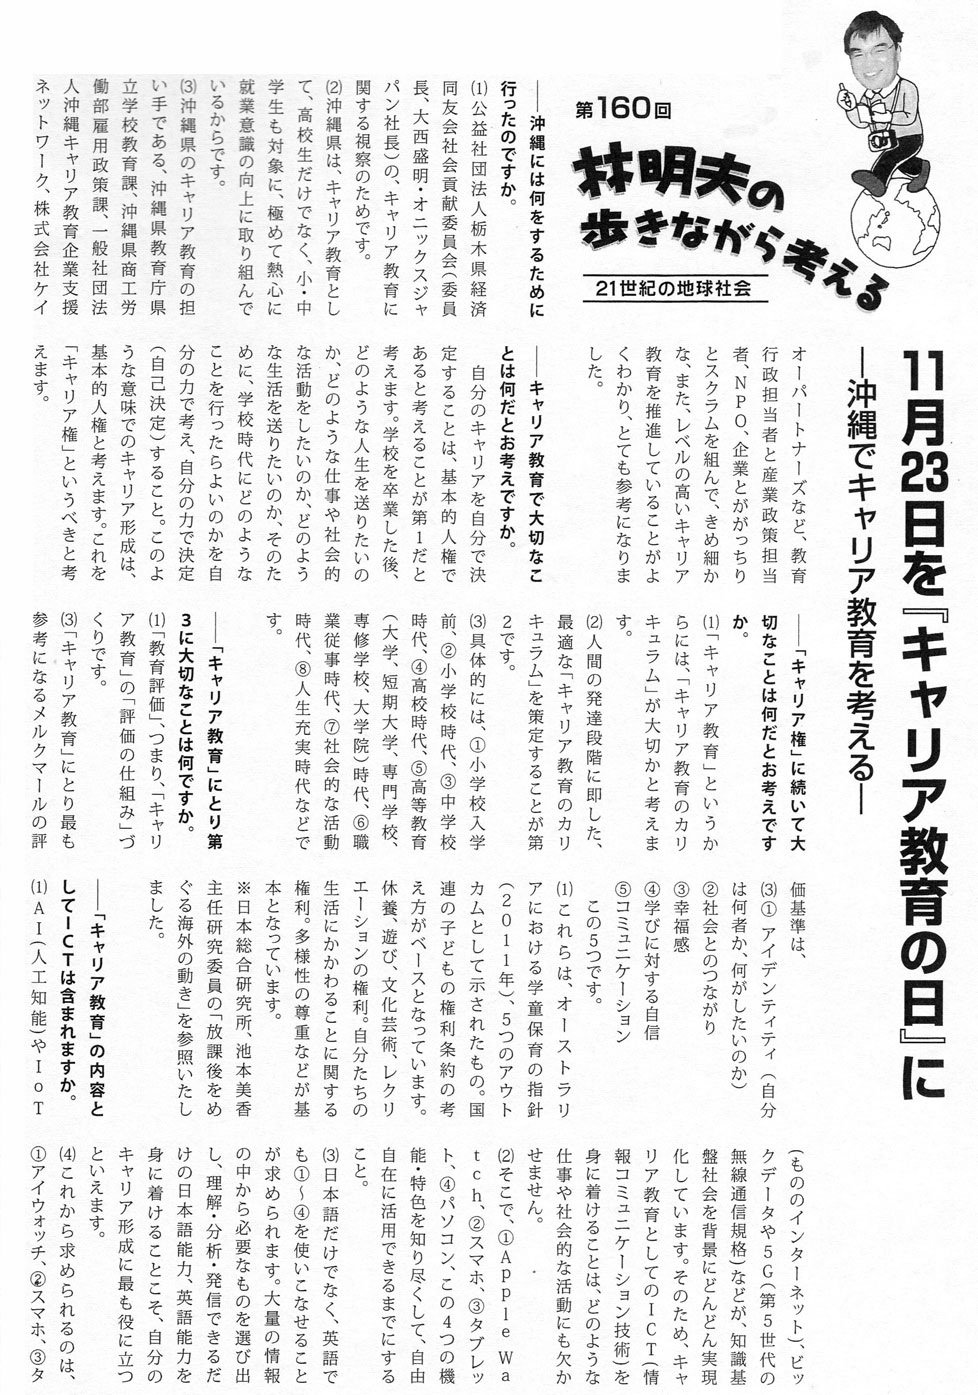 第160回
林明夫の
歩きながら考える
21世紀の地球社会
11月23日を『キャリア教育の日』に
―沖縄でキャリア教育を考える―
――沖縄には何をするために
行ったのですか。
⑴公益社団法人栃木県経済
同友会社会貢献委員会(委員
長、大西盛明・オニックスジャ
パン社長)の、キャリア教育に
関する視察のためです。
⑵沖縄県は、キャリア教育とし
て、高校生だけでなく、小・中
学生も対象に、極めて熱心に
就業意識の向上に取り組んで
いるからです。
⑶沖縄県のキャリア教育の担
い手である、沖縄県教育庁県
立学校教育課、沖縄県商工労
働部雇用政策課、一般社団法
人沖縄キャリア教育企業支援
ネットワーク、株式会社ケイ
オーパートナーズなど、教育
行政担当者と産業政策担当
者、NPO、企業とががっちり
とスクラムを組んで、きめ細か
な、また、レベルの高いキャリア
教育を推進していることがよ
くわかり、とても参考になりま
した。
――キャリア教育で大切なこ
とは何だとお考えですか。
自分のキャリアを自分で決
定することは、基本的人権で
あると考えることが第1だと
考えます。学校を卒業した後、
どのような人生を送りたいの
か、どのような仕事や社会的
な活動をしたいのか、どのよう
な生活を送りたいのか、そのた
めに、学校時代にどのような
ことを行ったらよいのかを自
分の力で考え、自分の力で決定
(自己決定)すること。このよ
うな意味でのキャリア形成は、
基本的人権と考えます。これを
「キャリア権」というべきと考
えます。
――「キャリア権」に続いて大
切なことは何だとお考えです
か。
⑴「キャリア教育」というか
らには、「キャリア教育のカリ
キュラム」が大切かと考えま
す。
⑵人間の発達段階に即した、
最適な「キャリア教育のカリ
キュラム」を策定することが第
2です。
⑶具体的には、①小学校入学
前、②小学校時代、③中学校
時代、④高校時代、⑤高等教育
(大学、短期大学、専門学校、
専修学校、大学院)時代、⑥職
業従事時代、⑦社会的な活動
時代、⑧人生充実時代などで
す。
――「キャリア教育」にとり第
3に大切なことは何ですか。
⑴「教育評価」、つまり、「キャリ
ア教育」の「評価の仕組み」づ
くりです。
⑶「キャリア教育」にとり最も
参考になるメルクマールの評
価基準は、
⑶① アイデンティティ(自分
は何者か、何がしたいのか)
②社会とのつながり
③幸福感
④学びに対する自信
⑤コミュニケーション
この5つです。
⑴これらは、オーストラリ
アにおける学童保育の指針
(2011年)、5つのアウト
カムとして示されたもの。国
連の子どもの権利条約の考
え方がベースとなっています。
休養、遊び、文化芸術、レクリ
エーションの権利。自分たちの
生活にかかわることに関する
権利。多様性の尊重などが基
本となっています。
※日本総合研究所、池本美香
主任研究委員の「放課後をめ
ぐる海外の動き」を参照いたし
ました。
――「キャリア教育」の内容と
してICTは含まれますか。
⑴AI(人工知能)やIoT
(もののインターネット)、ビッ
クデータや5G(第5世代の
無線通信規格)などが、知識基
盤社会を背景にどんどん実現
化しています。そのため、キャ
リア教育としてのICT(情
報コミュニケーション技術)を
身に着けることは、どのような
仕事や社会的な活動にも欠か
せません。
⑵そこで、①Apple Wa
tch、②スマホ、③タブレッ
ト、④パソコン、この4つの機
能・特色を知り尽くして、自由
自在に活用できるまでにする
こと。
⑶日本語だけでなく、英語で
も①～④を使いこなせること
が求められます。大量の情報
の中から必要なものを選び出
し、理解・分析・発信できるだ
けの日本語能力、英語能力を
身に着けることこそ、自分の
キャリア形成に最も役に立つ
といえます。
⑷これから求められるのは、
①アイウォッチ、②スマホ、③タ